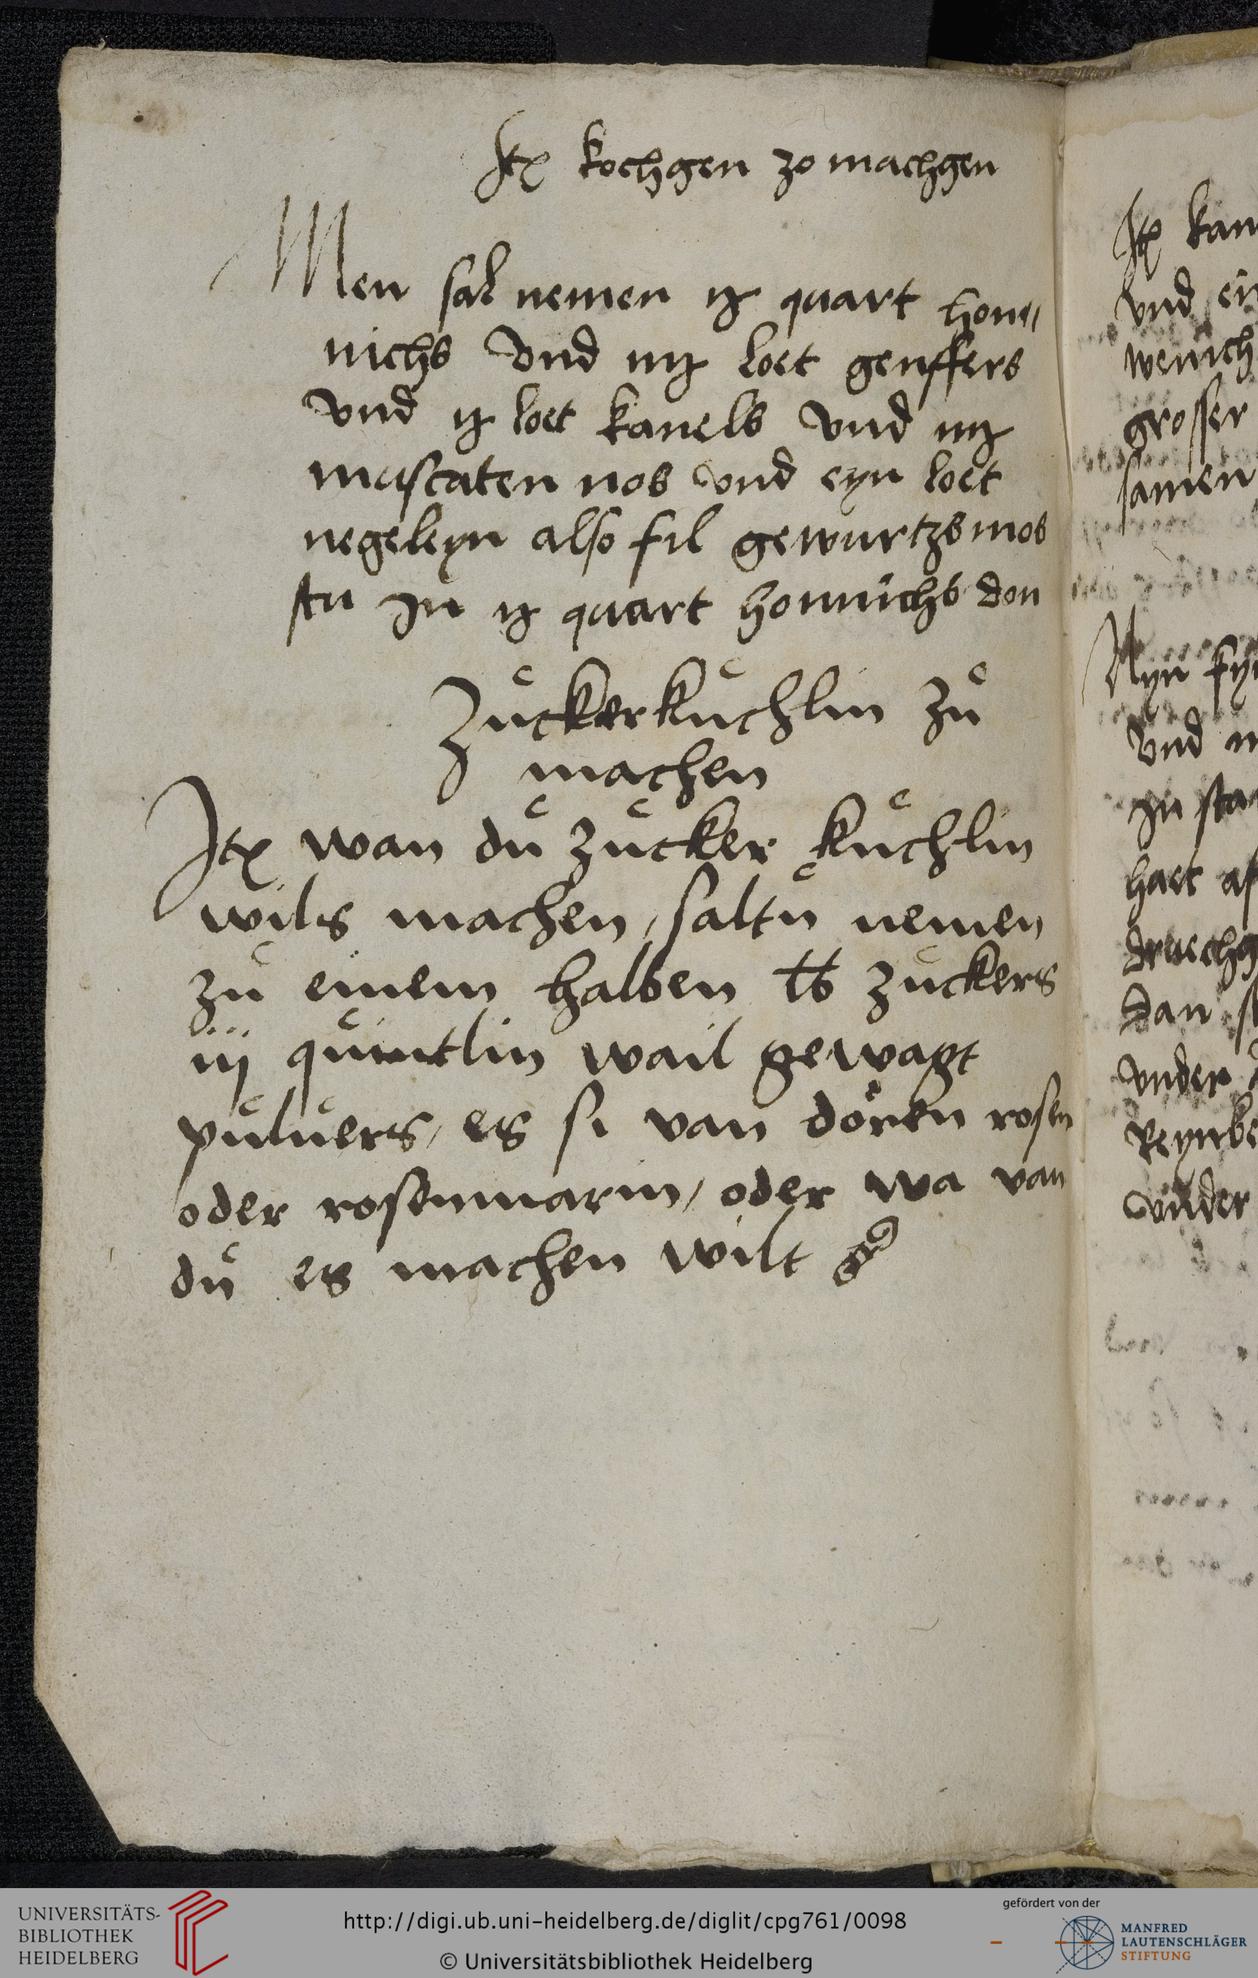 Itꝫ kochgen zo machgen
Men sal nemen ij quart hon„
nichs vnd iiij loet genffers
vnd ij loet kanels vnd iiij
muscaten nos vnd eyn loet
negeleyn also fil gewurtzs mos
stu in ij quart honnichs don
Zůckerkůchlin zů
machen
Itꝫ wan dů zůcker kůchlin
wils machen, saltů nemen
zů einem halben ℔ zůckers
iij qůintlin wail gewagt
půlůers, es si van dören rosen
oder rosenmarin, oder wa van
dů es machen wilt
Itꝫ kan
vnd ein
wenich
grosser
samen
Nyn fy
vnd
in sta
haet
druechg
dan
vnder
Reynbe
vnder
UNIVERSITÄTS-
BIBLIOTHEK
HEIDELBERG
http://digi.ub.uni-heidelberg.de/diglit/cpg761/0098
© Universitätsbibliothek Heidelberg
gefördert von der
MANFRED
LAUTENSCHLÄGER
STIFTUNG